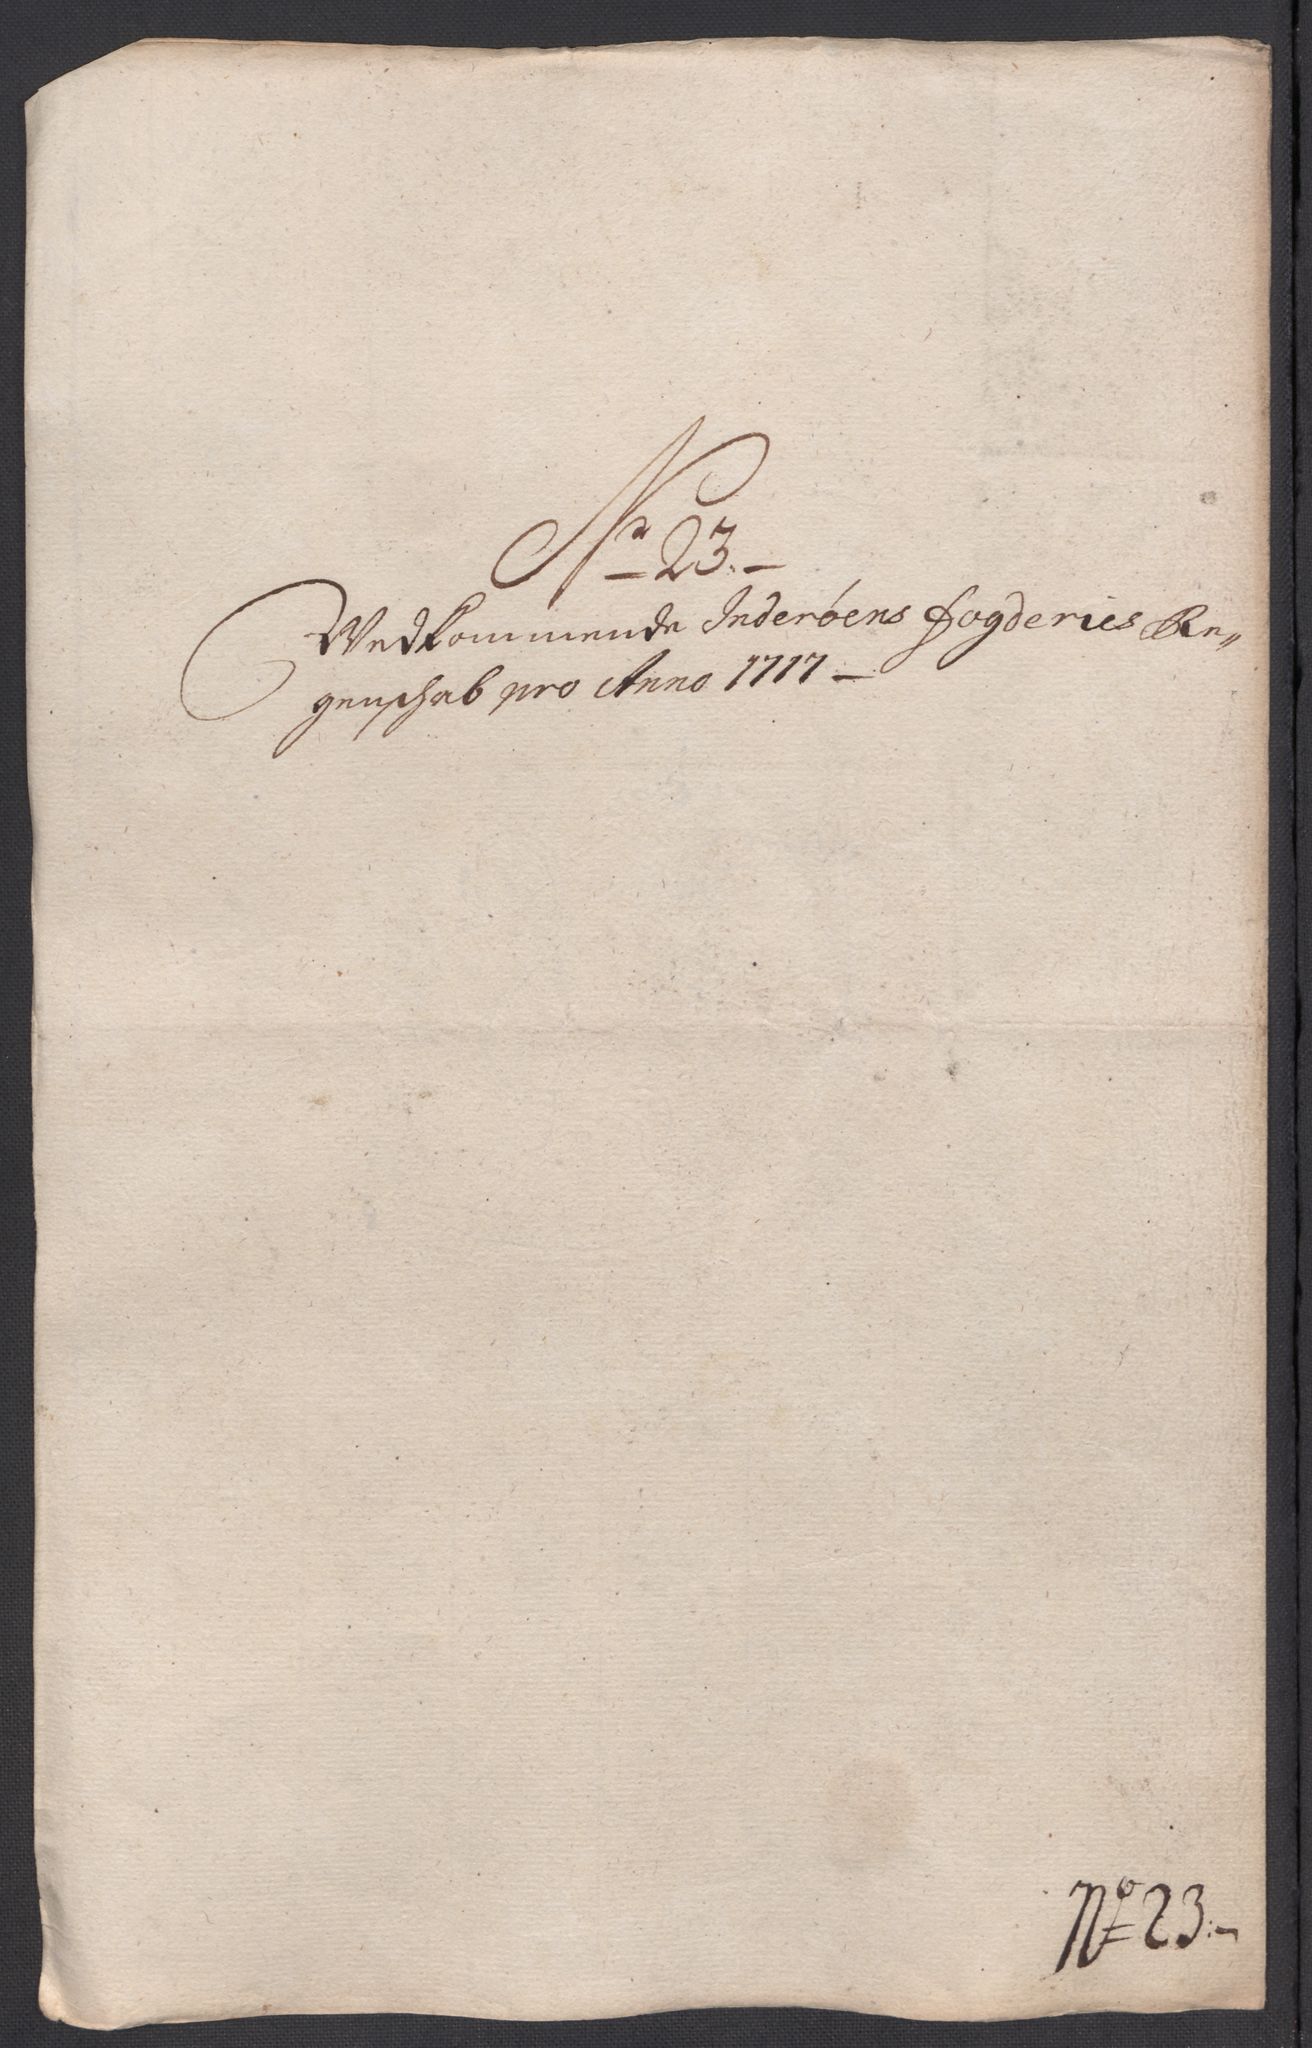 Nr 23.-
Vedkommende Inderöens Fogderies Re„
genschab pro Anno 1717 -
No 23.-